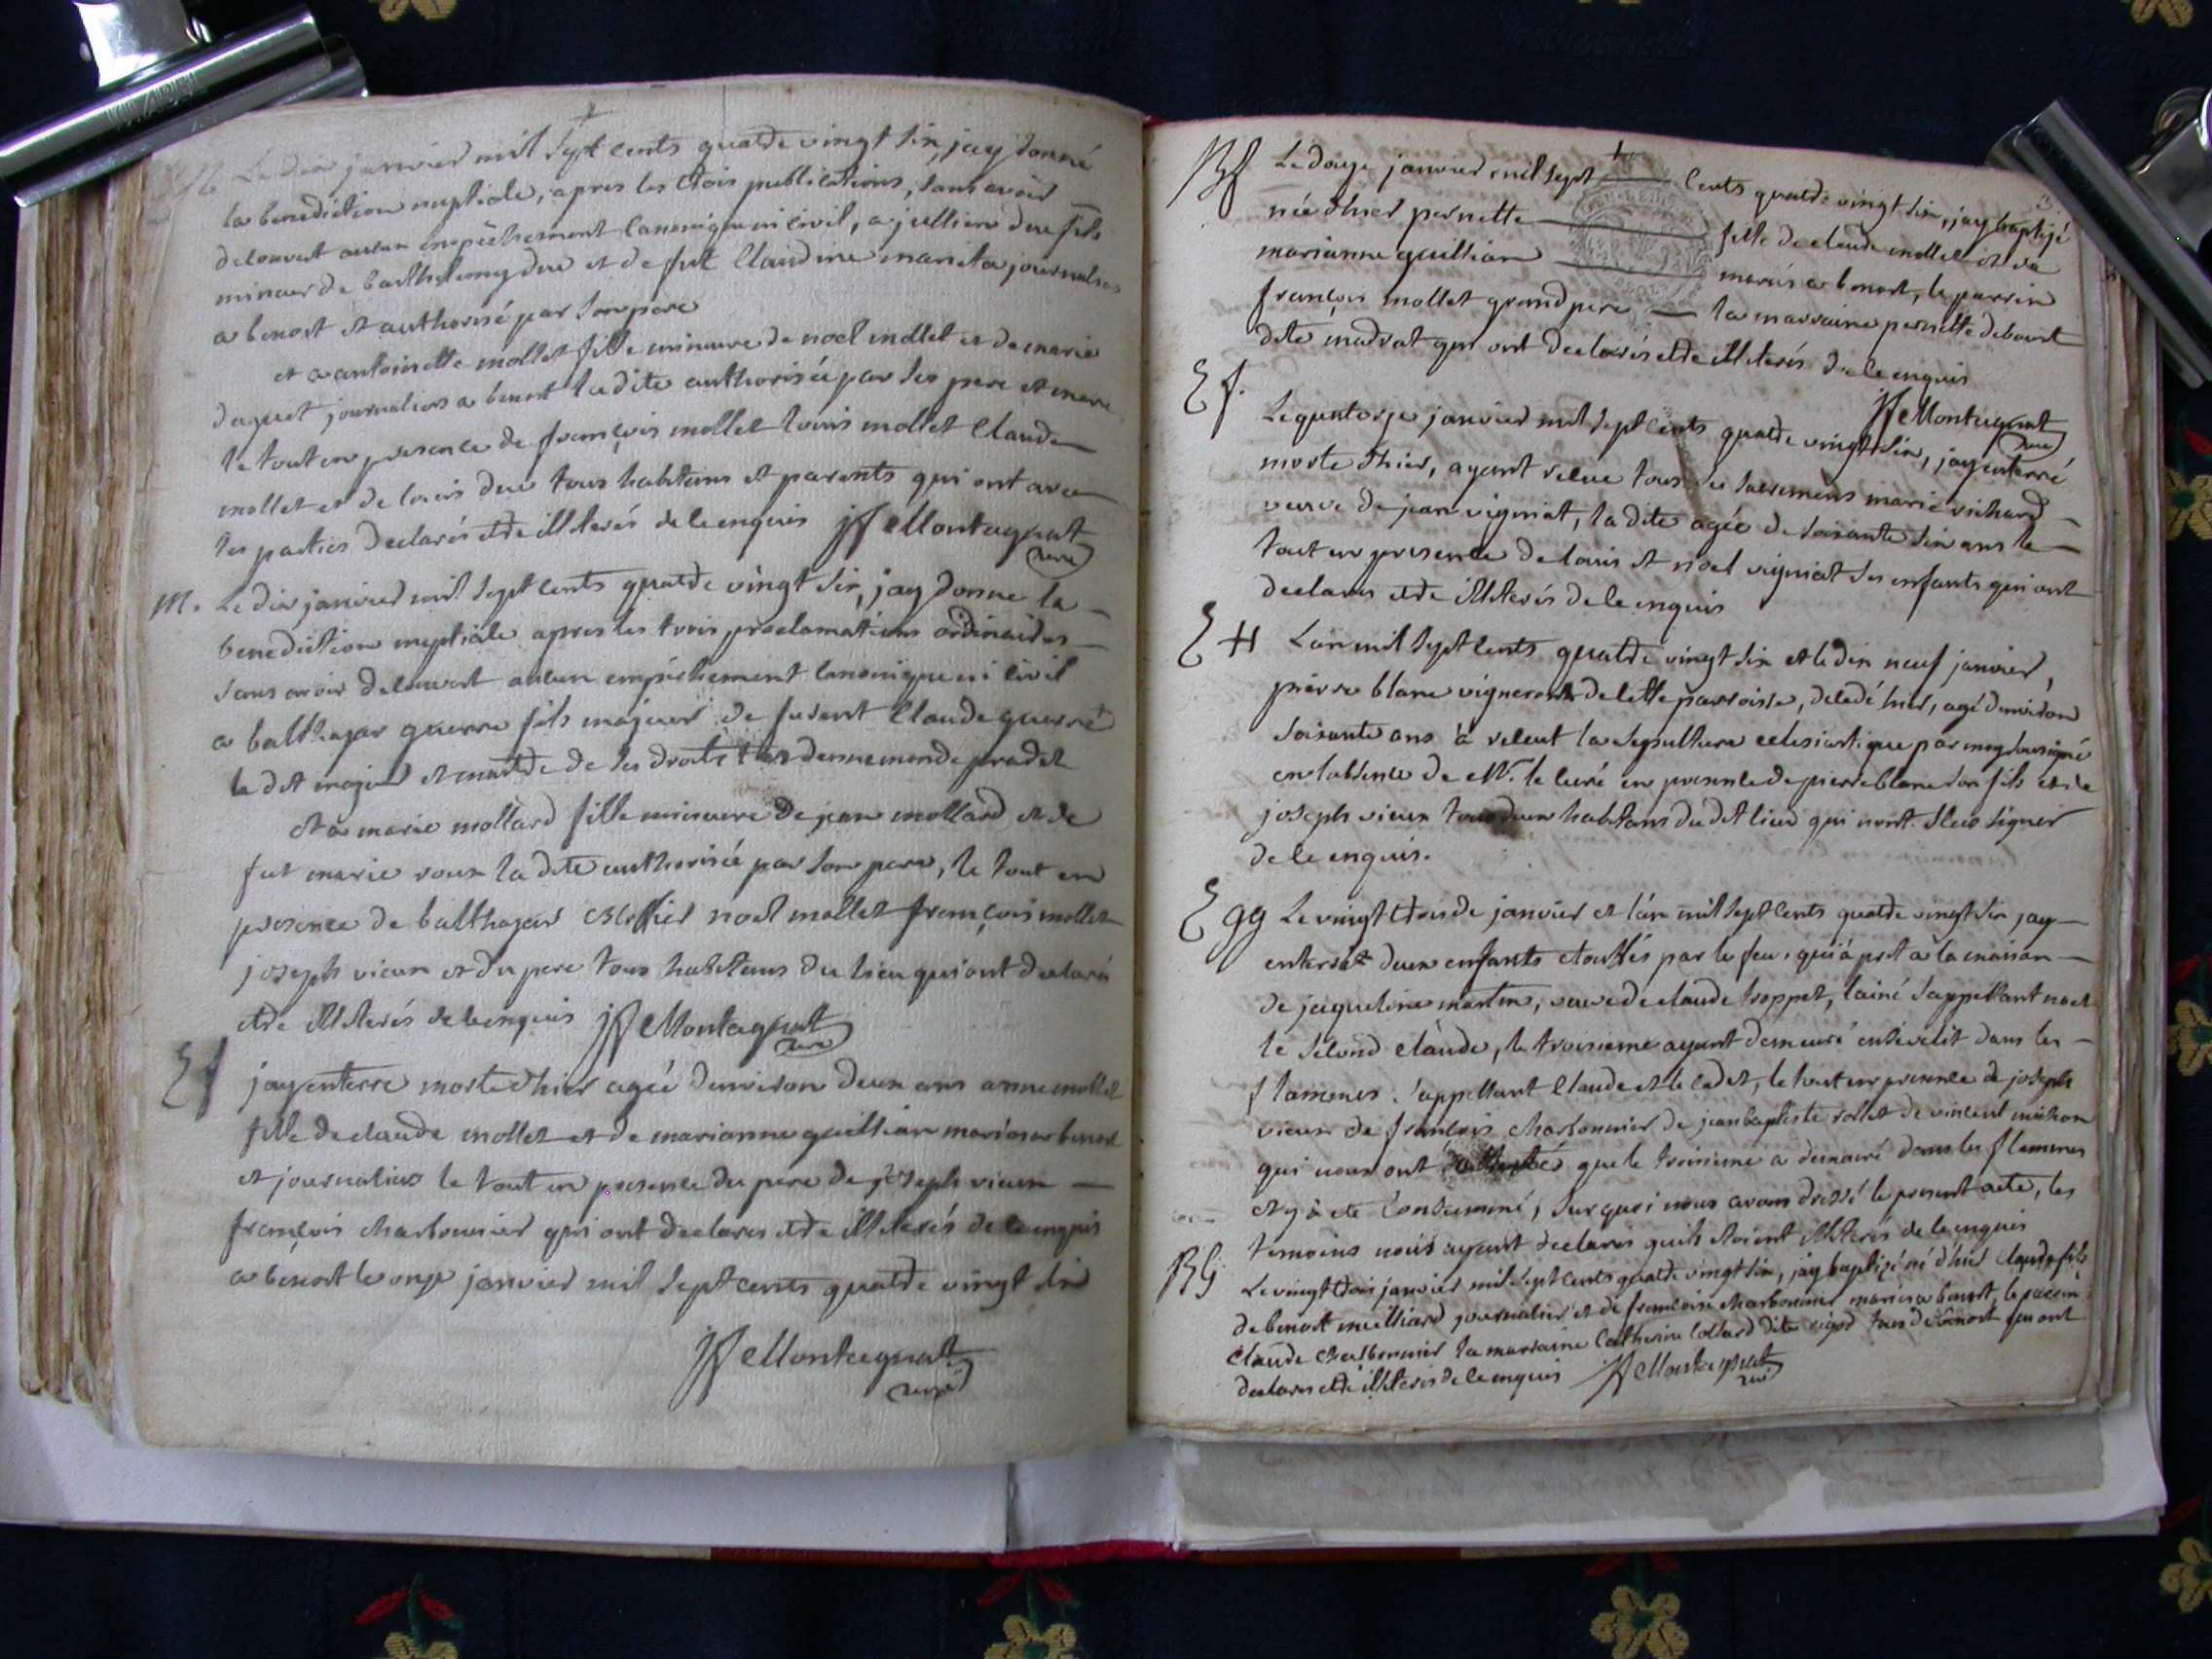 M Le dix janvier mil sept cents quatre vingt six, jay donné
la benediction nuptiale, apres les trois publications, sans avoir
decouvert aucun empêchement canonique ni civil, a jullien duc fils
mineur de barthelemy duc et de fut Claudine journalier
a benost et authorisé par son pere
et a antoinette mollet fille mineure de noel mollet et de marie
duquet journaliers a benost la dite authorisée par ses pere et mere
le tout en presence de françois mollet louis mollet Claude
mollet et de louis duc tous habitans et parents qui ont avec
les parties declarés etre illiterés de ce enquis jf Montagnat
curé
M. Le dix janvier mil sept cents quatre vingt six, jay donne la
benediction nuptiale apres les trois proclamations ordinaires
sans avoir decouvert aucun empêchement canonique ni civil
a balthazar guerre fils majeur de fut Claude guerre
le dit majeur et maitre de ses droits et dennemonde pradel
et a marie mollard fille mineure de jean mollard et de
fut marie roux la dite authorisée par son pere, le tout en
presence de balthazar noel mollet françois mollet
joseph vieux et du pere tous habitans du lieu qui ont declaré
etre illiterés de ce enquis jf Montagnat
curé
E f jay enterre morte d'hier agée d'environ deux ans anne mollet
fille de claude mollet et de marianne quillian mariés a benost
et journaliers le tout en presence du pere de joseph vieux
françois charbonnier qui ont declares etre illiterés de ce enquis
a benost le onze janvier mil sept cents quatre vingt six
jf Montagnat
curé
B f Le douze janvier mil sept cents quatre vingt six, jay baptizé
née d'hier pernette fille de claude mollet et de
marianne quillian mariés a benost, le parrin
françois mollet grand pere la marraine pernette debourt
dite madrat qui ont declarés etre illiterés de ce enquis
jf Montagnat
curé
E f. Le quatorze janvier mil sept cents quatre vingt six, jay enterré
morte d'hier, ayant reçue tous les sacremens marie richard
veuve de jean vigniat, la dite agée de soixante six ans le
tout en presence de louis et noel vigniat ses enfants qui ont
declares etre illiterés de ce enquis
E H L'an mil sept cents quatre vingt six et le dix neuf janvier,
pierre blanc vigneron de cette parroisse, decedé hier, agé d'environ
soixante ans à reçeut la sepulture eclesiastique par moy soussigné
en l'absence de Mr. le curé en presence de pierre blanc son fils et de
joseph vieux tous deux habitans du dit lieu qui n'ont sceu signer
de ce enquis.
E gg Le vingt trois de janvier et l'an mil sept cents quatre vingt six jay
enterré deux enfants etouffés par le feu, qui à prit à la maison
de jaqueline martin, veuve de claude troppet, l'ainé s'appellant noel
le second claude, le troisieme ayant demeuré ensevelit dans les
flammes s'appellant Claude et le cadet, le tout en presence de joseph
vieux de françois charbonnier de jean baptiste rollet de vincent michon
qui nous ont attestés que le troisieme a demeuré dans les flammes
et y à eté consummé, sur quoi nous avons dressé le present acte, les
temoins nous ayant declarés quils etoient illiterés de ce enquis
B G Le vingt trois janvier mil sept cents quatre vingt six, jay baptizé né d'hier Claude fils
de benost milliard journalier et de françoise charbonnier mariés a benost, le parrin
Claude charbonnier la marraine Catherine Collard dite tous de benost qui ont
declares etre illiterés de ce enquis jf Montagnat
curé